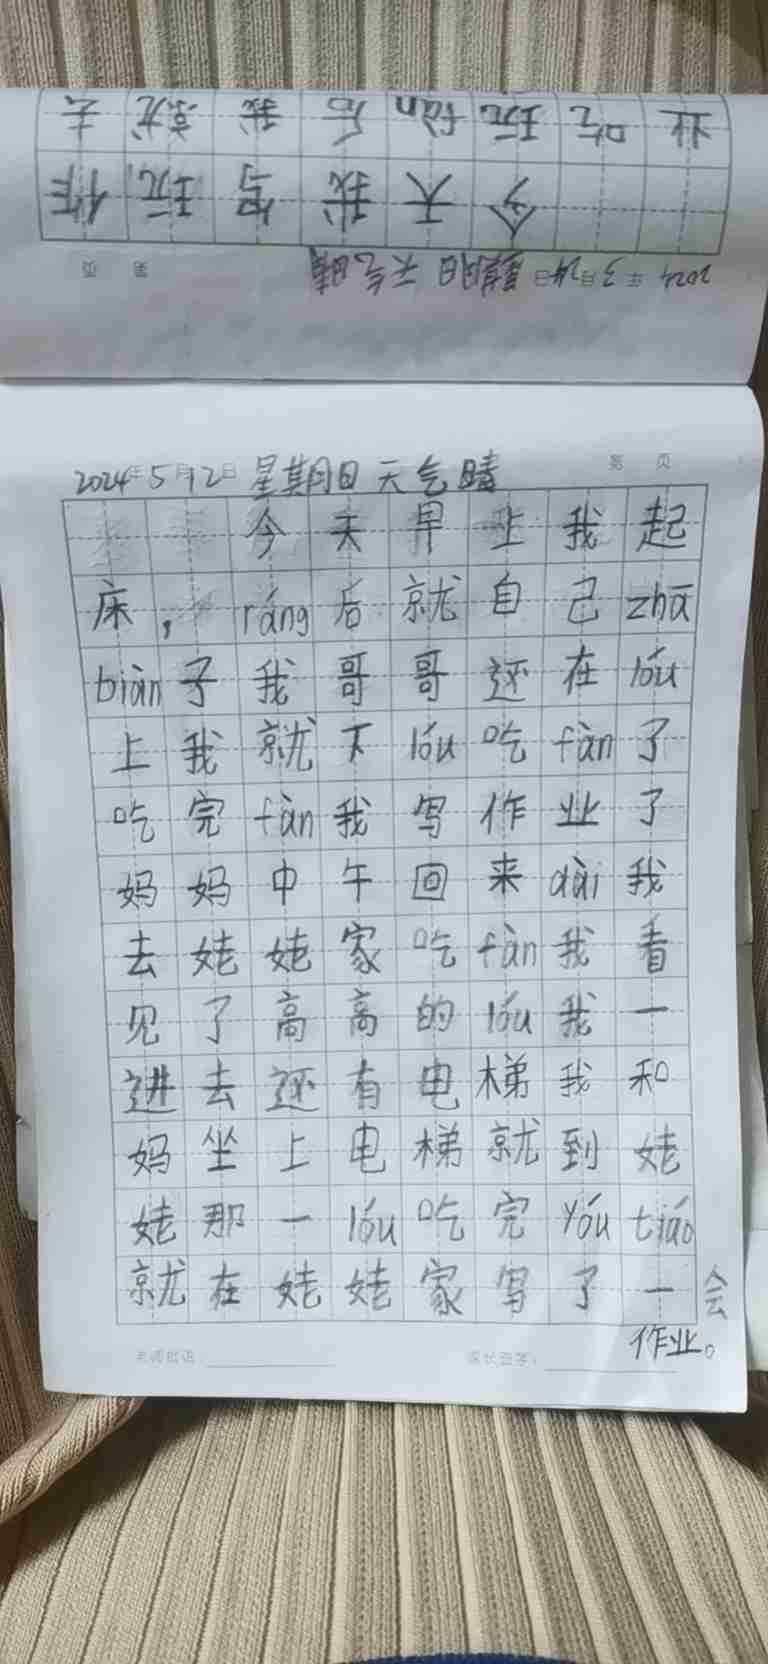 2024年3月24日 星期日 天气晴 第 页
今天我写玩作
业吃玩fàn后我就去
2024年5月12日 星期日 天气晴 第 页
今天早上我起
床，ráng后就自己zhā
biàn子我哥哥还在lóu
上我就下lóu吃fàn了
吃完fàn我写作业了
妈妈中午回来dài我
去姥姥家吃fàn我看
见了高高的lóu我一
进去还有电梯我和
妈坐上电梯就到姥
姥那一lóu吃完yóu tiáo
就在姥姥家写了一会
作业。
老师批语： 家长签字：